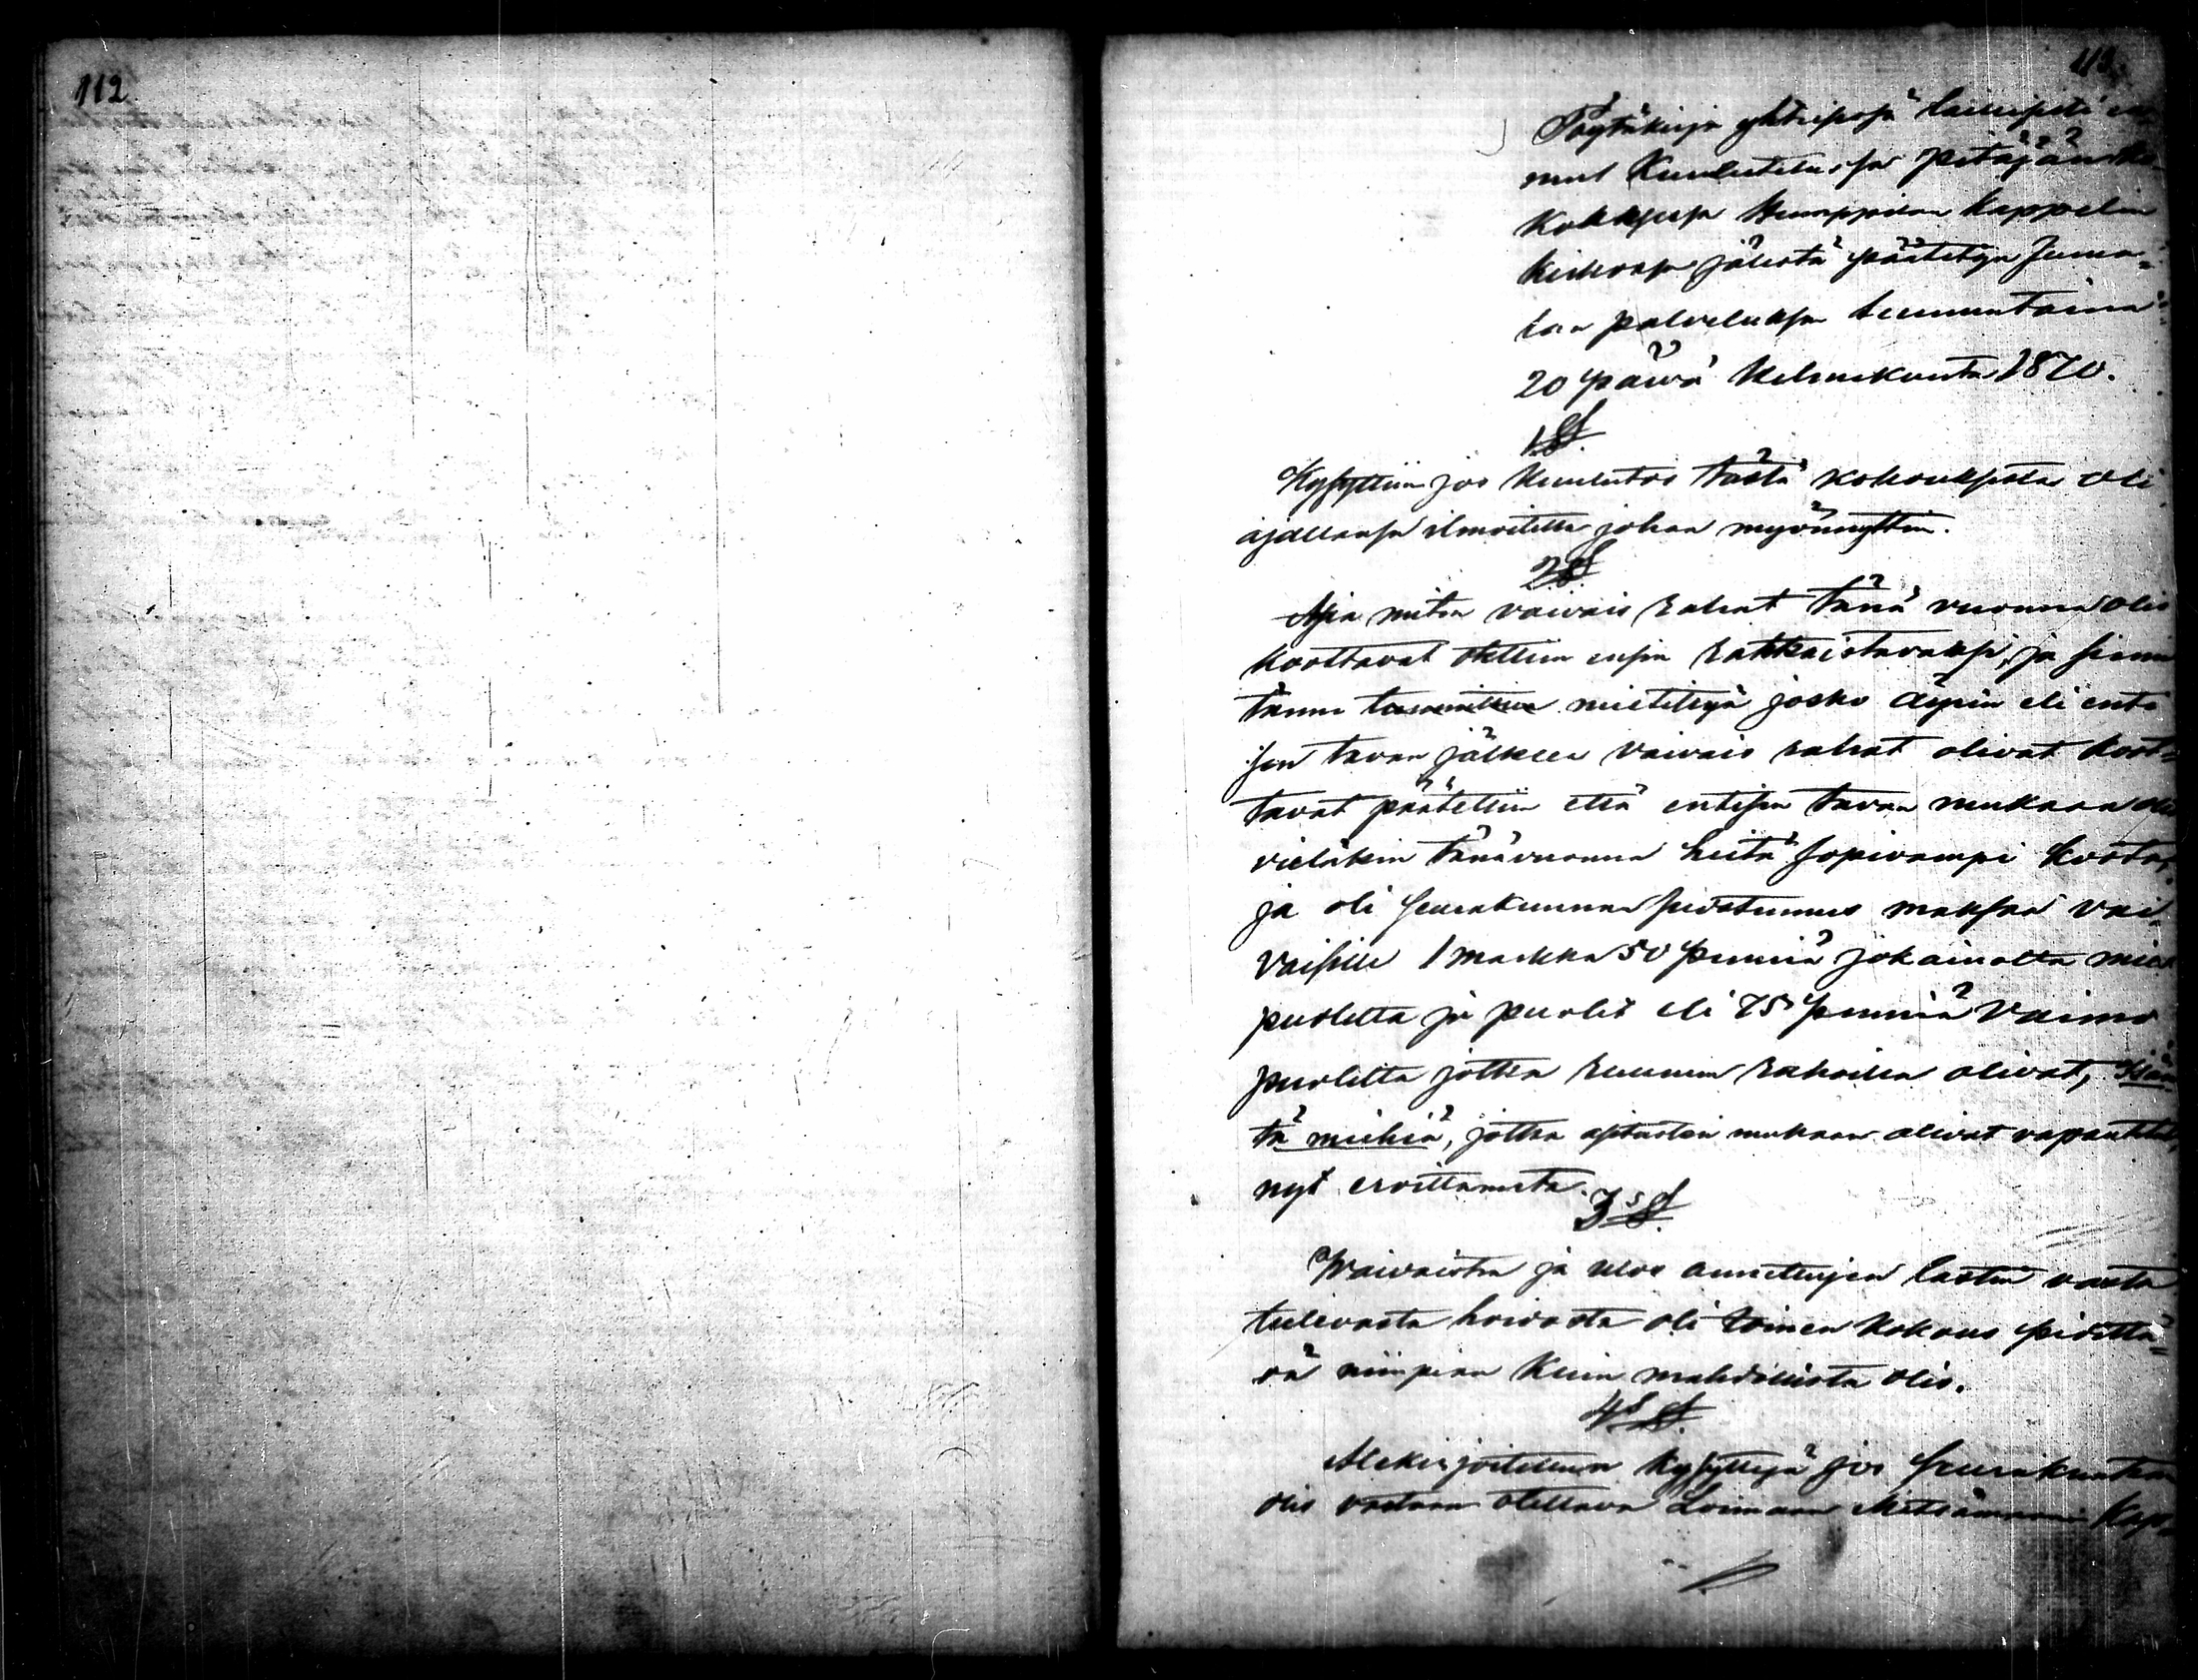 112
113.
Pöytäkirja yhteisesä laillisesti
nut Kuulutetussa pitäjän ko-
kouksesa Humppilan kappelin
kirkosa jälestä päätetyn Juma-
lan palveluksen Sunnuntaina
20 päivä Helmikuuta 1870.
1 §.
Kysyttiin jos Kuulutos tästä kokouksesta oli
ajallansa ilmoitettu johon myönnyttiin.
2 §.
Asia miten vaivais rahat tänä vuonna olis
koottavat otettiin ensin ratkaistavaksi, ja
mietittyä josko äyrin eli enti
sen tavan jälkeen vaivais rahat olivat koot-
tavat päätettiin että entisen tavan mukaan olis
vieläkin tänävuonna heitä sopivampi koota,
ja oli seurakunnan suostumus maksaa vai
vaisille 1 markka 50 penniä jokaiselta mies
puolelta ja puolet eli 75 penniä vaimo
puolelta jotka ruunun rahoilla olivat,
tä miehiä, jotka asetusten mukaan olivat vapautetut,
nyt eroittamata.
3 s §.
Waivaisten ja ulos annettujen lasten vasta
tulevasta hoidosta oli toinen kokous pidettä-
vä niinpian kuin mahdollista olis.
4 s §.
Allekirjoitettu kysyttyä jos seurakuntaan
olis vastaan otettava Loimaan Metsämaan Kap-